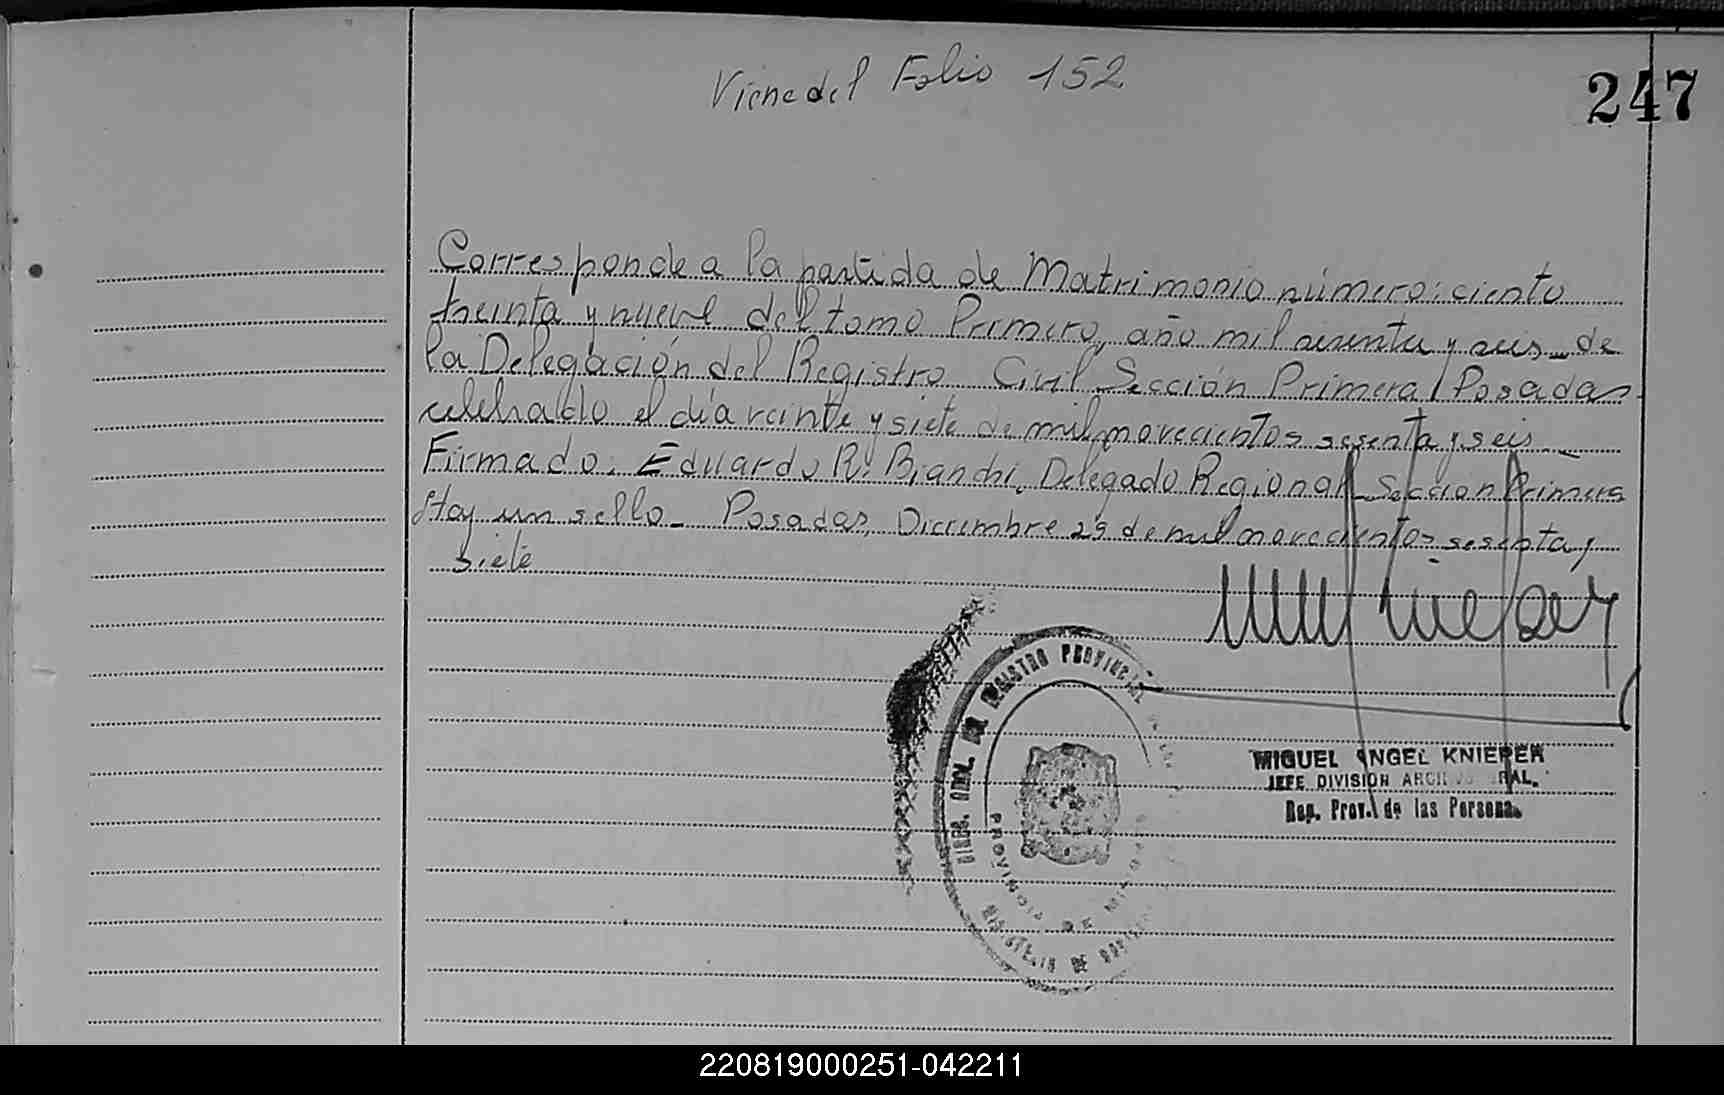 Viene del Folio 152
247
Corresponde a la partida de Matrimonio número: ciento
treinta y nueve del tomo Primero, año mil sesenta y seis de
la Delegación del Registro Civil Sección Primera, Posadas
celebrado el día veinte y siete de mil novecientos sesenta y seis
Firmado. Eduardo R. Bianchi, Delegado Regional Sección Primera
Hay un sello - Posadas, Diciembre 29 de mil novecientos sesenta y
siete
REGISTRO PROVINCIAL
PROVINCIA DE
MIGUEL ANGEL KNIEPER
JEFE DIVISION ARCH GRAL.
Rep. Prov. de las Personas
220819000251-042211